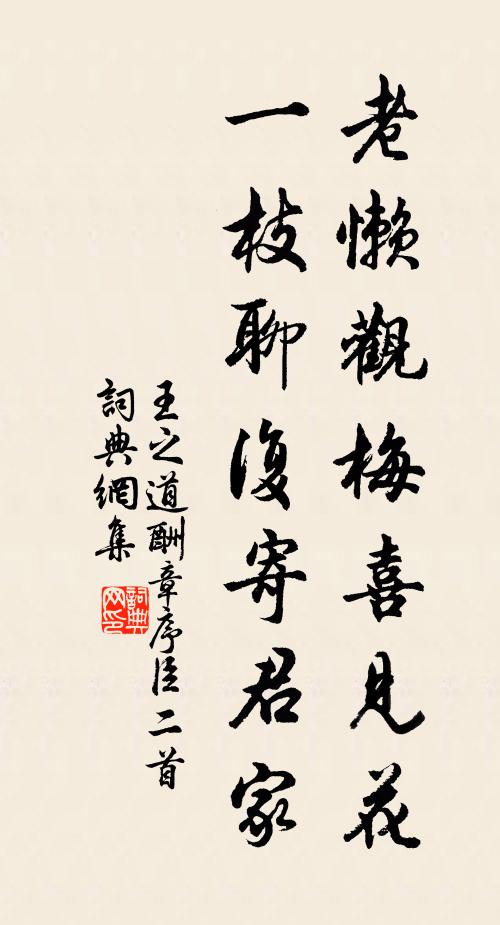 老懶觀梅喜見花
一枝聊復寄君家
王之道酬章序臣二首
詞典網集
詞典网印